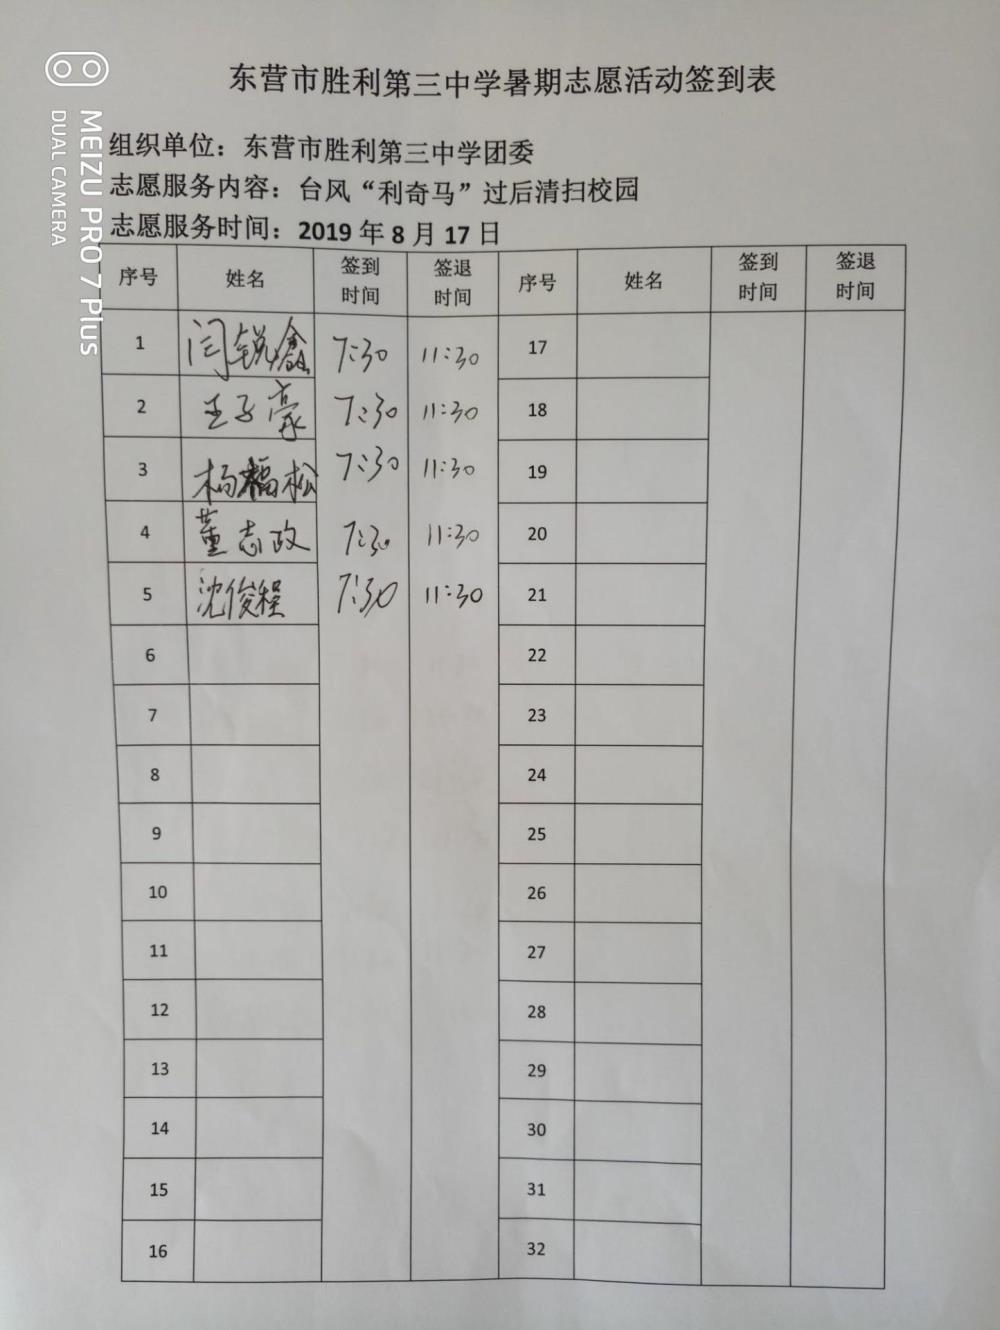 东营市胜利第三中学暑期志愿活动签到表
组织单位：东营市胜利第三中学团委
志愿服务内容：台风“利奇马”过后清扫校园
志愿服务时间：2019 年 8 月 17 日
序号 姓名 签到时间 签退时间 序号 姓名 签到时间 签退时间
1 闫锐鑫 7:30 11:30 17
2 王子豪 7:30 11:30 18
3 杨福松 7:30 11:30 19
4 董志政 7:30 11:30 20
5 沈俊程 7:30 11:30 21
6 22
7 23
8 24
9 25
10 26
11 27
12 28
13 29
14 30
15 31
16 32
MEIZU PRO 7 Plus
DUAL CAMERA